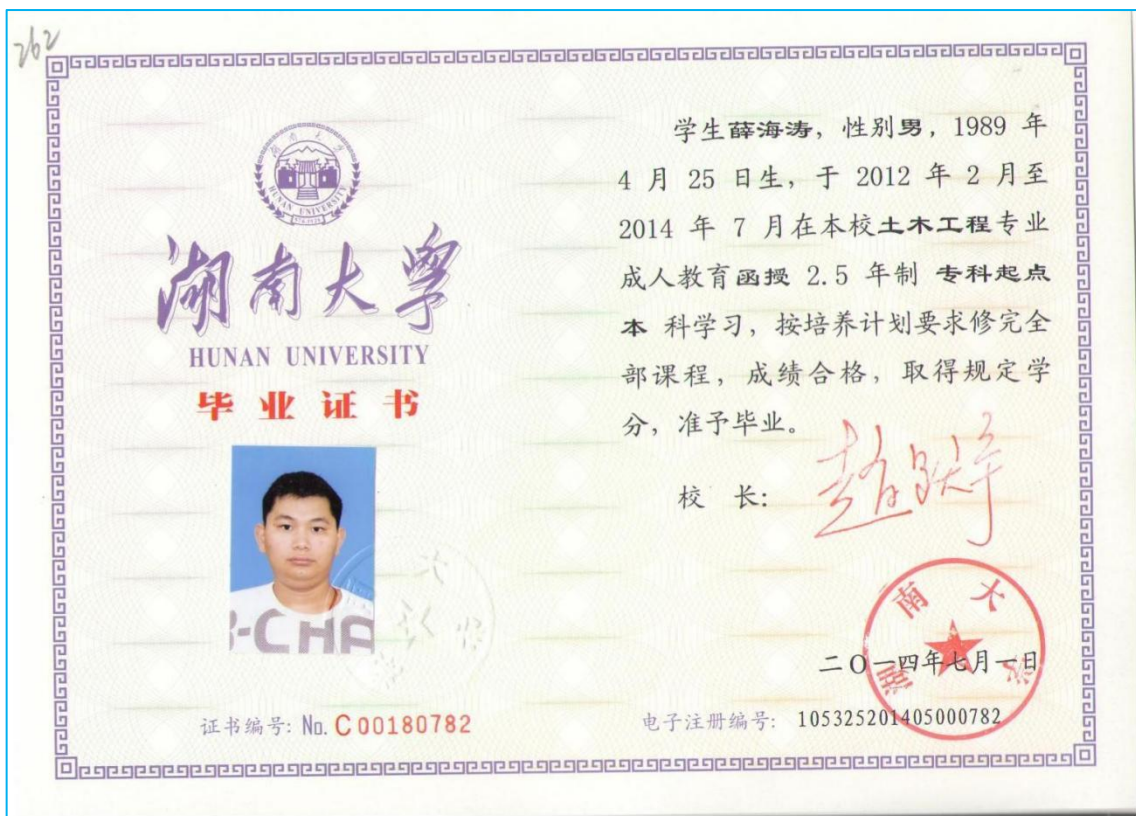 262
湖南大学
HUNAN UNIVERSITY
湖南大学
HUNAN UNIVERSITY
毕业证书
证书编号: No. C 00180782
学生薛海涛，性别男，1989 年
4 月 25 日生，于 2012 年 2 月至
2014 年 7 月在本校土木工程专业
成人教育函授 2.5 年制 专科起点
本 科学习，按培养计划要求修完全
部课程，成绩合格，取得规定学
分，准予毕业。
校 长:
湖南大学
二O一四年七月一日
电子注册编号: 105325201405000782